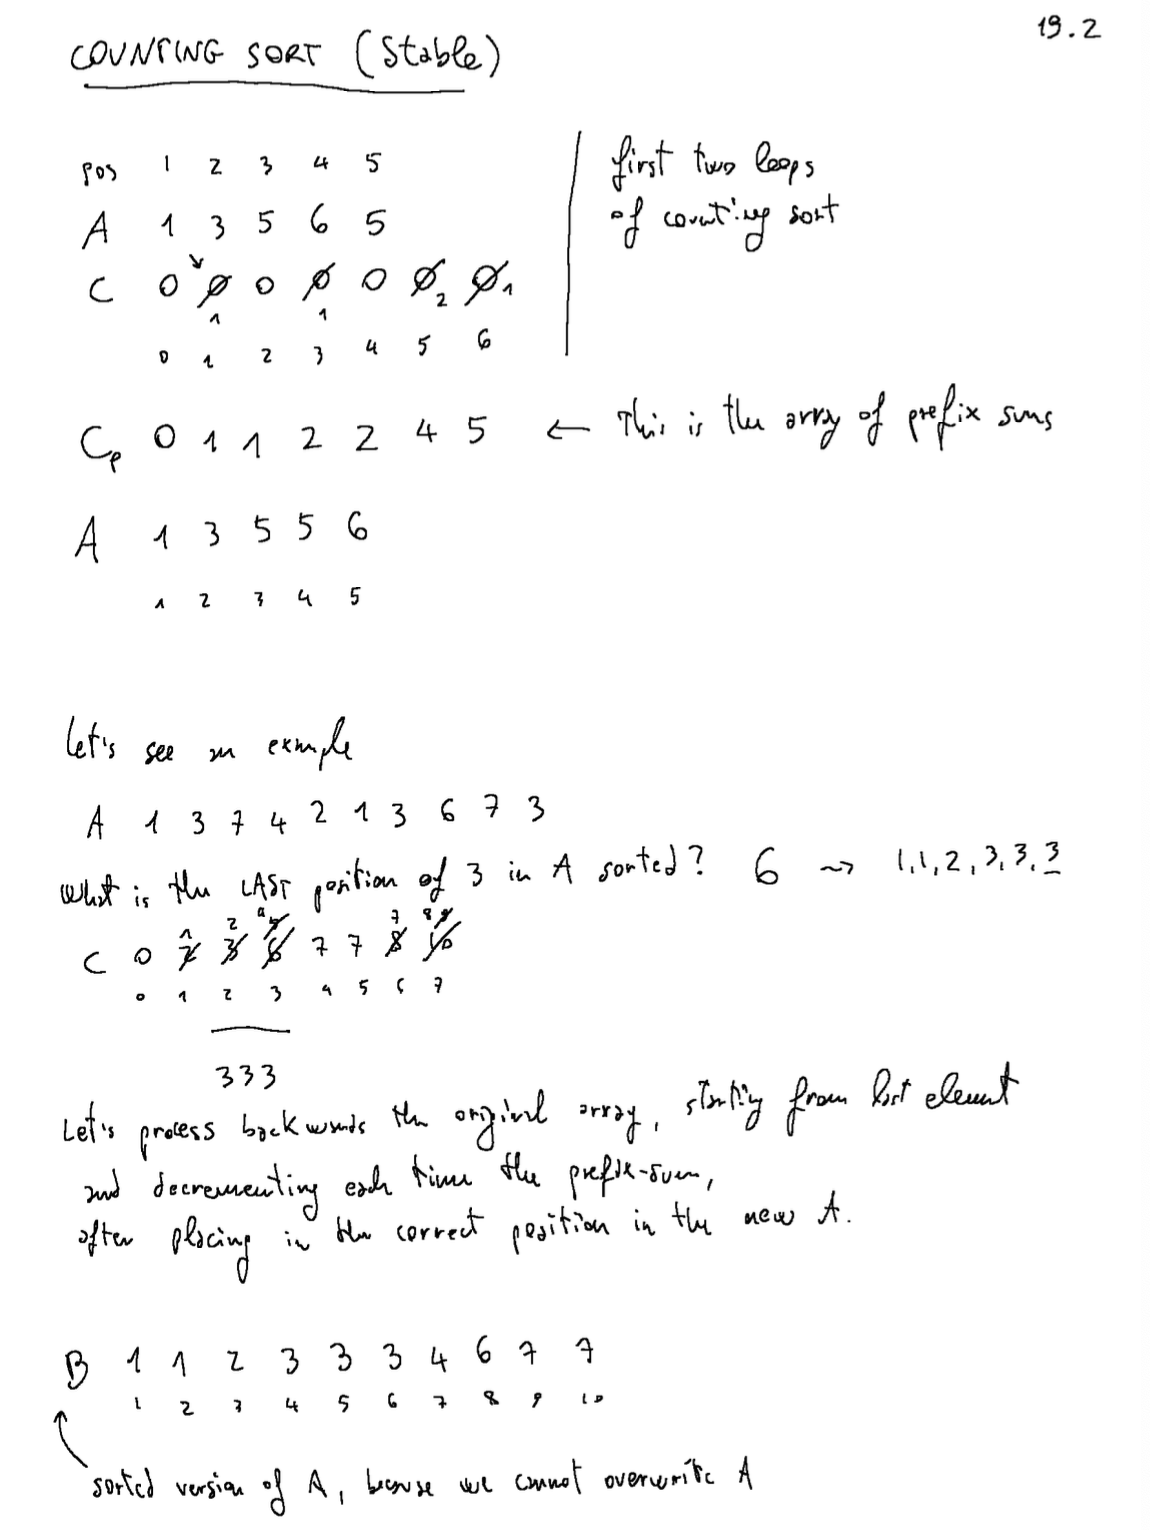 19.2
COUNTING SORT (Stable)
pos 1 2 3 4 5
A 1 3 5 6 5
C 0 0 0 0 0 0 0
1 1 2 1
0 1 2 3 4 5 6
first two loops
of counting sort
Cp 0 1 1 2 2 4 5 ← This is the array of prefix sums
A 1 3 5 5 6
1 2 3 4 5
Let's see an example
A 1 3 7 4 2 1 3 6 7 3
What is the LAST position of 3 in A sorted? 6 ⇝ 1,1,2,3,3,3
1 2 4 5 7 8 9
C 0 2 3 6 7 7 8 10
0 1 2 3 4 5 6 7
333
Let's process backwards the original array, starting from last element
and decrementing each time the prefix-sum,
after placing in the correct position in the new A.
B 1 1 2 3 3 3 4 6 7 7
1 2 3 4 5 6 7 8 9 10
sorted version of A, because we cannot overwrite A